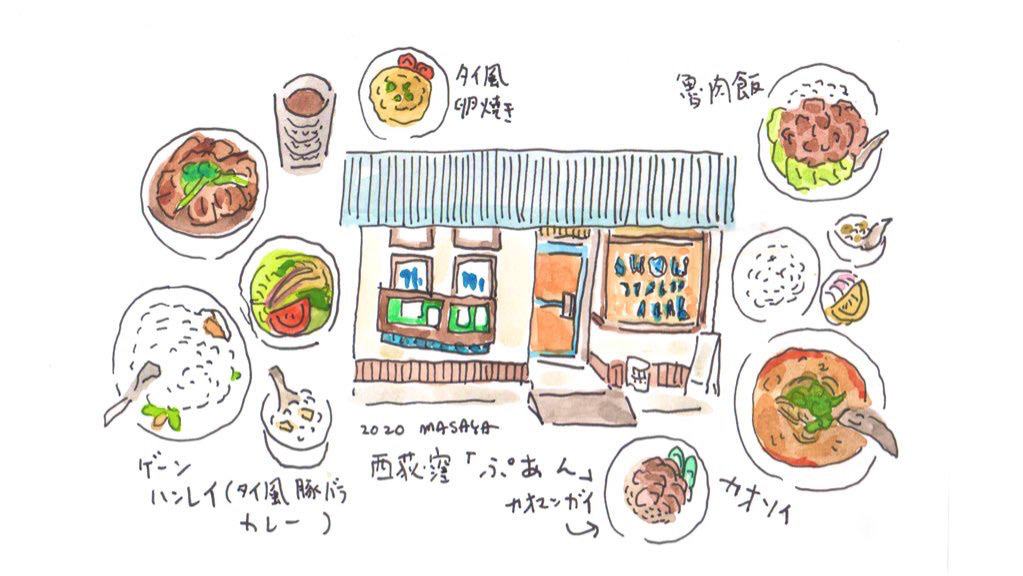 タイ風
卵焼き
魯肉飯
2020 MASAYA
西荻窪「ぷあん」
カオマンガイ
カオソイ
ゲーン
ハンレイ(タイ風豚バラ
カレー)